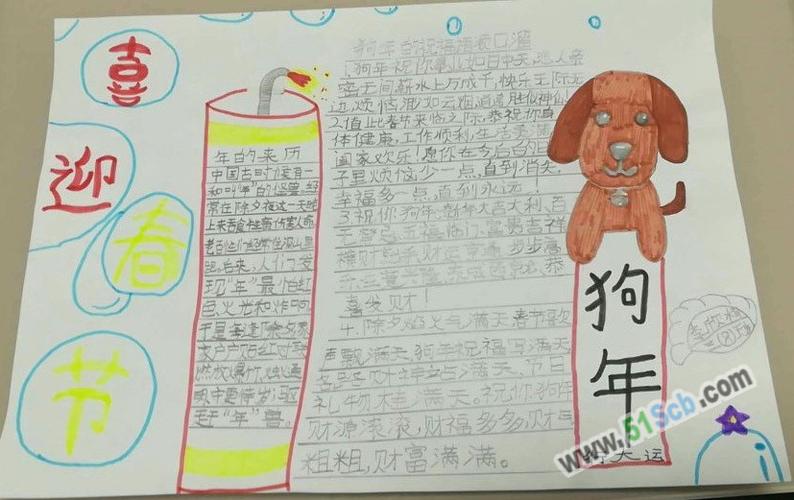 喜
迎
春
节
年的来历
中国古时候有一
和叫“年”的怪兽,经
常在除夕夜这一天晚
上来吞食牲畜伤害人命
后来,人们发
现“年”最怕红
色、火光和炸响,
于是每逢除夕家
家户户贴红对联
燃放爆竹,烛通
明守更待岁,驱
赶“年”兽。
狗年的祝福语
1.狗年祝你事业如日中天,恋人亲
密无间,薪水上万成千,快乐无际无
边,烦恼
2.值此春节来临之际,恭祝你身
体健康,工作顺利,生活美满
阖家欢乐!愿你在今后的日
子里烦恼少一点,直到消失,
幸福多一点,直到永远!
3.祝你狗年:新年大吉大利、百
无禁忌、五福临门、富贵吉祥
步步高
恭
喜发财!
4.除夕焰火气满天,春节喜欢
声飘满天,狗年祝福写满天,
各路财神站满天,节日
礼物堆满天。祝你狗年
财源滚滚,财福多多,财气
粗粗,财富满满。
狗
年
大运
www.51Scb.com